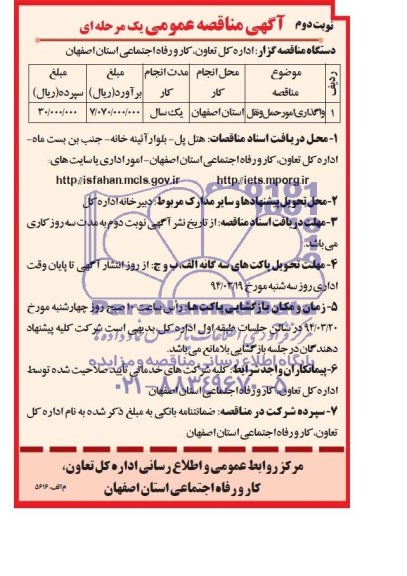 نوبت دوم آگهی مناقصه عمومی یک مرحله ای
دستگاه مناقصه گزار: اداره کل تعاون، کار و رفاه اجتماعی استان اصفهان
ردیف موضوع مناقصه محل انجام کار مدت انجام کار مبلغ برآورد(ریال) مبلغ سپرده(ریال)
۱ واگذاری امور حمل و نقل استان اصفهان یک سال ۷/۰۷۰/۰۰۰/۰۰۰ ۳۰/۰۰۰/۰۰۰
۱-محل دریافت اسناد مناقصات: هتل پل- بلوار آئینه خانه- جنب بن بست ماه-
اداره کل تعاون، کار و رفاه اجتماعی استان اصفهان- امور اداری یا سایت های:
http://iets.mporg.ir http://isfahan.mcls.gov.ir
۲-محل تحویل پیشنهادها و سایر مدارک مربوط: دبیرخانه اداره کل
۳-مهلت دریافت اسناد مناقصه: از تاریخ نشر آگهی نوبت دوم به مدت سه روز کاری
می باشد.
۴- مهلت تحویل پاکت های سه گانه الف، ب و ج: از روز انتشار آگهی تا پایان وقت
اداری روز سه شنبه مورخ ۹۴/۰۳/۱۹
۵- زمان و مکان بازگشایی پاکت ها: رأس ساعت ۱۰ صبح روز چهارشنبه مورخ
۹۴/۰۳/۲۰ در سالن جلسات طبقه اول اداره کل، بدیهی است شرکت کلیه پیشنهاد
دهندگان در جلسه بازگشایی بلامانع می باشد.
۶-پیمانکاران واجد شرایط: کلیه شرکت های خدماتی تأیید صلاحیت شده توسط
اداره کل تعاون، کار و رفاه اجتماعی استان اصفهان
۷- سپرده شرکت در مناقصه: ضمانتنامه بانکی به مبلغ ذکر شده به نام اداره کل
تعاون، کار و رفاه اجتماعی استان اصفهان
پایگاه اطلاع رسانی مناقصه و مزایده
۰۲۱-۸۸۳۴۹۶۷۰-۵
مرکز روابط عمومی و اطلاع رسانی اداره کل تعاون،
کار و رفاه اجتماعی استان اصفهان
م الف: ۵۶۱۶